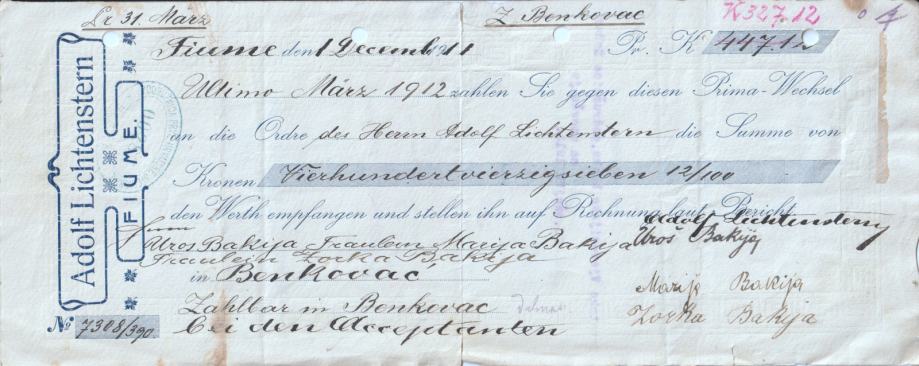 Pr 31. März
Z Benkovac
K327.12
Fiume den 1 December 911 Pr. K 447.12
Ultimo März 1912 zahlen Sie gegen diesen Prima-Wechsel
an die Ordre des Herrn Adolf Lichtenstern die Summe von
Kronen Vierhundertvierzigsieben 12/100
den Werth empfangen und stellen ihn auf Rechnung laut Bericht
Adolf Lichtenstern
Herrn
Uros Bakija Fraulein Marija Bakija
Uroš Bakija
Fraulein Zorka Bakija
in Benkovač
Marija Bakija
Zahlbar in Benkovac
Zorka Bakija
bei den Acceptanten
Adolf Lichtenstern
FIUME.
No 7308/390